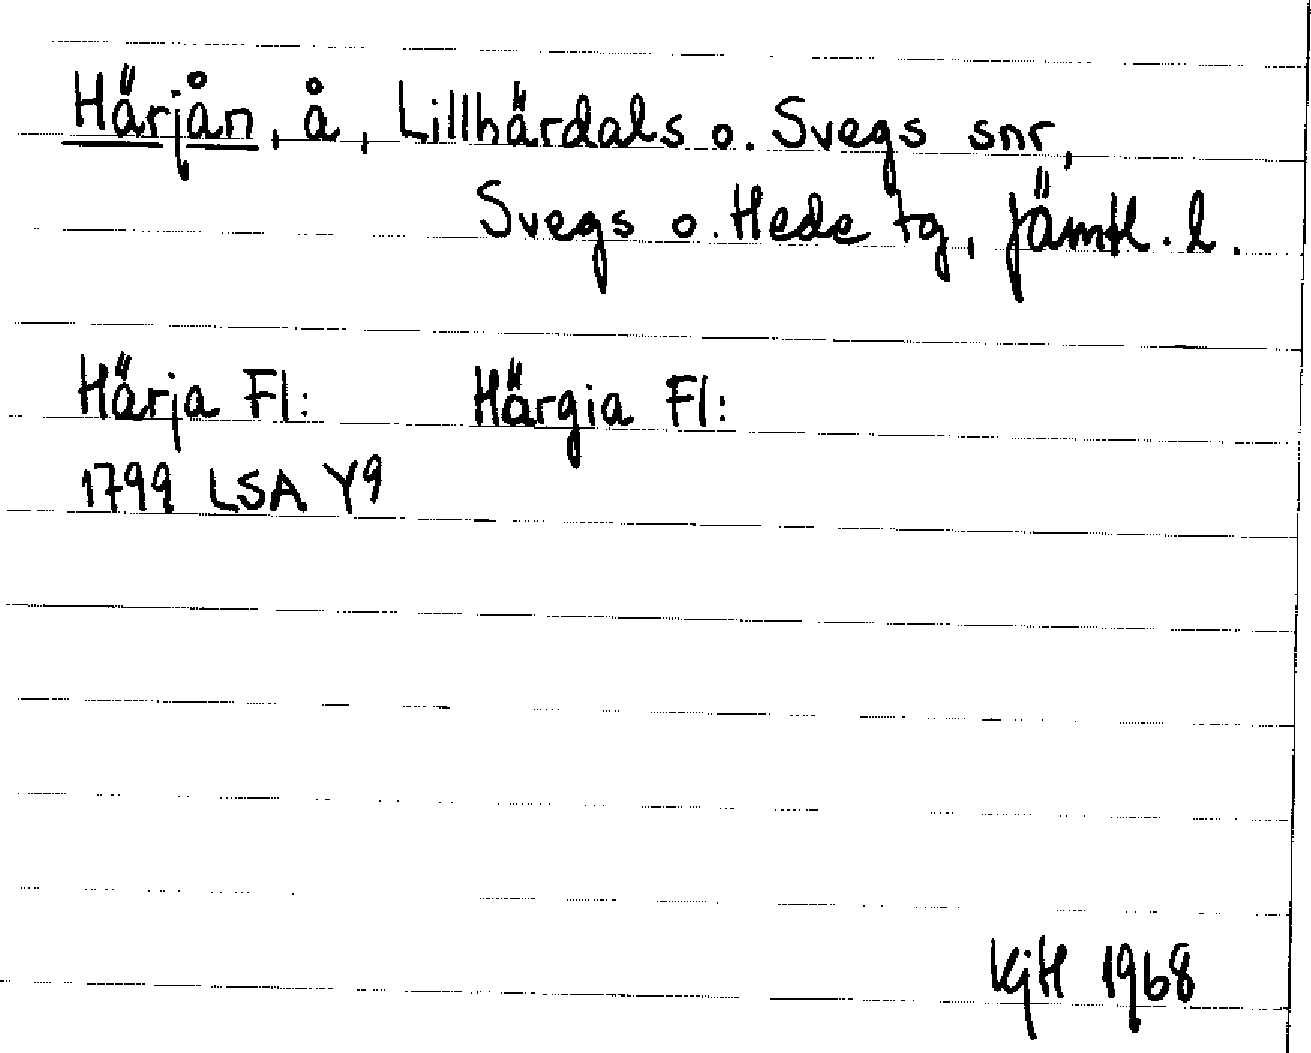 Härjån, å, Lillhärdals o. Svegs snr,
Svegs o. Hede tg, Jämtl. l.
Härja Fl: Härgia Fl:
1799 LSA Y9
KjH 1968